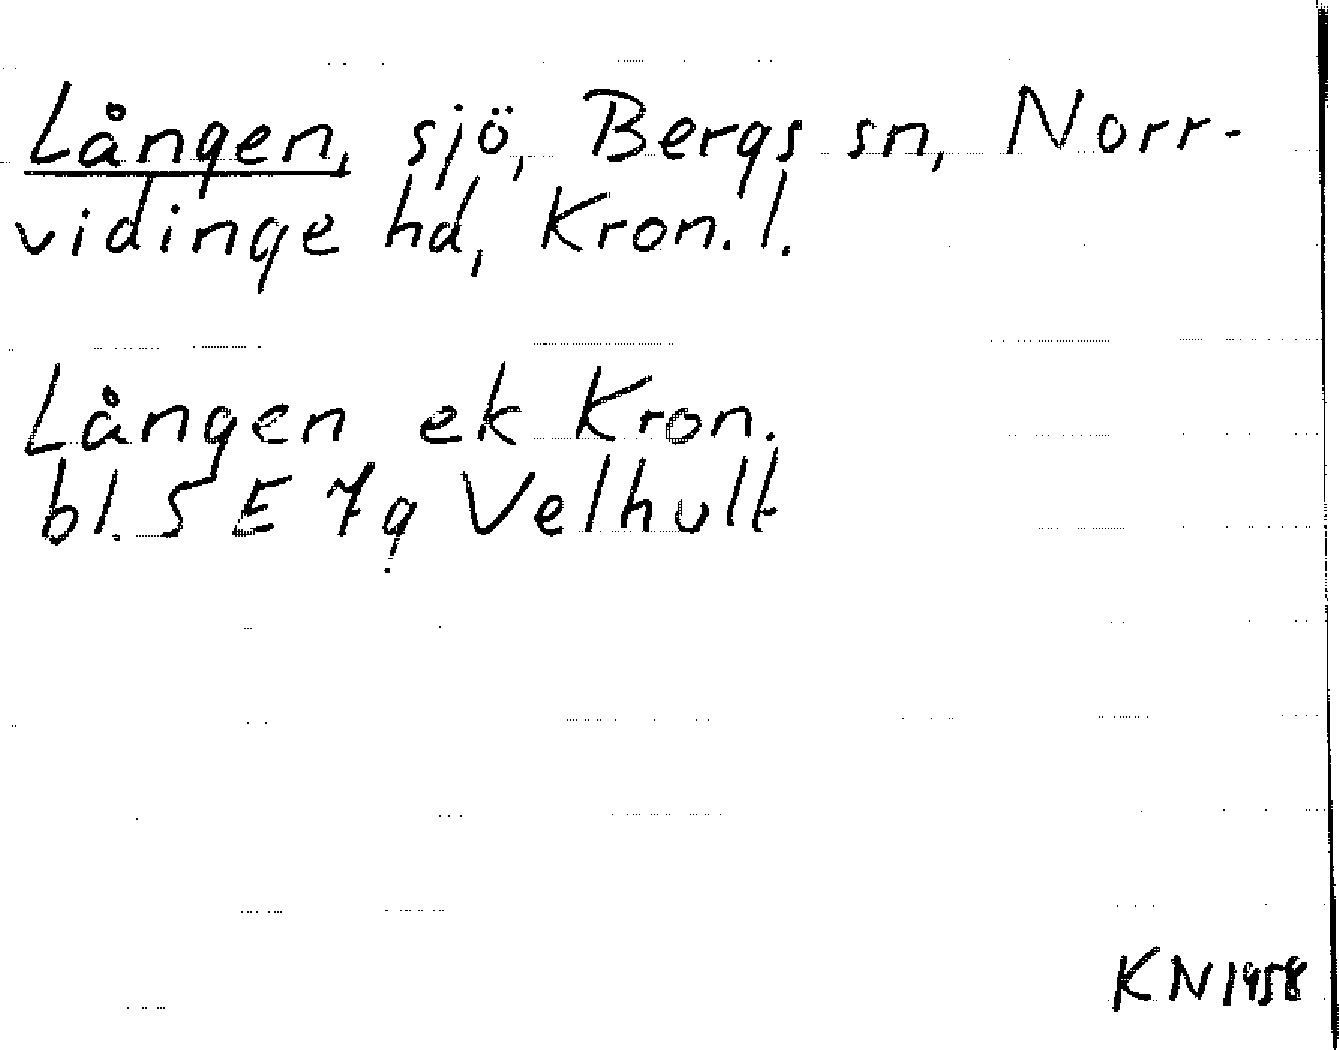 Lången, sjö, Bergs sn, Norr-
vidinge hd, Kron. l.
Lången ek Kron.
bl. 5 E 7g Velhult
KN 1958